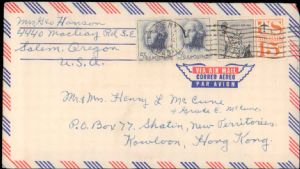 Mrs Geo Hanson
4440 Macleay Rd S.E.
Salem, Oregon
U.S.A.
5¢
15¢
VIA AIR MAIL
CORREO AEREO
PAR AVION
Mr & Mrs. Henry L McCune
+ Grace E. McCune
P.O. Box 77. Shatin, New Territories.
Kowloon, Hong Kong